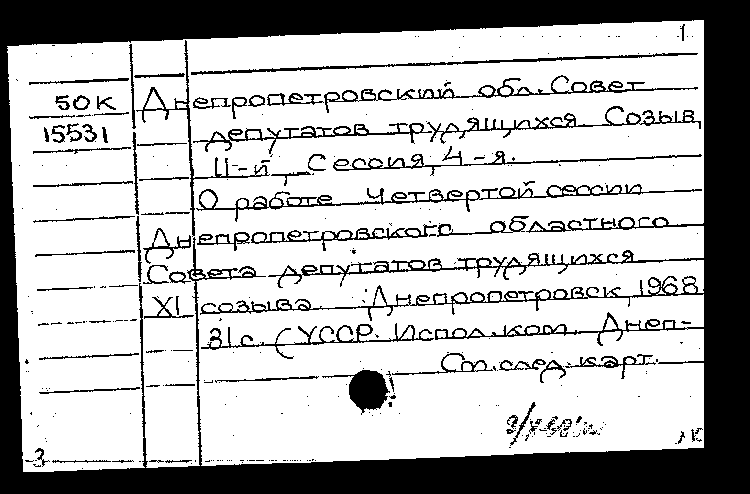 1
50К Днепропетровский обл. Совет
15531 депутатов трудящихся. Созыв,
11-й, Сессия, 4-я.
О работе четвертой сессии
Днепропетровского областного
Совета депутатов трудящихся
XI созыва. Днепропетровск, 1968.
31 с. (УССР. Испол. ком. Днеп-
См. след. карт.
3